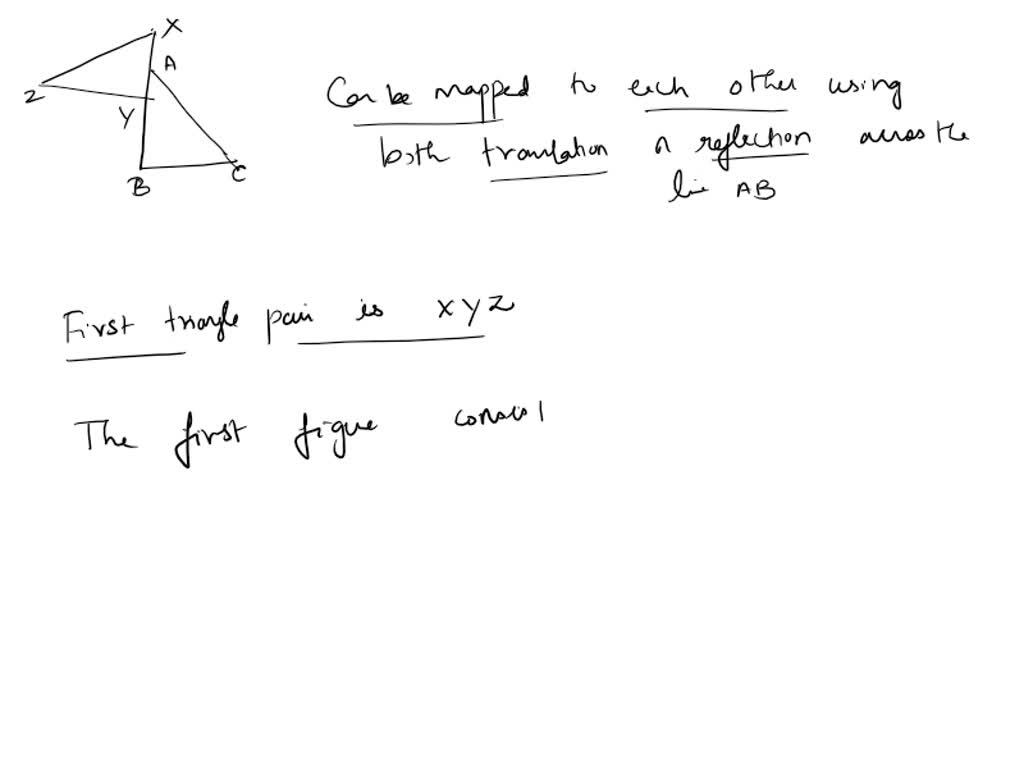 X
A
Z
Y
B
C
Can be mapped to each other using
both translation n reflection across the
line AB
First triangle pair is XYZ
The first figue consis